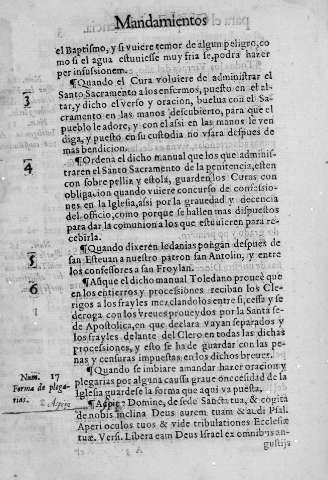 Mandamientos
el Baptismo, y si vuiere temor de algun peligro, co
mo si el agua estuuiesse muy fria se, podra hazer
per infusionem.
¶Quando el Cura voluiere de administrar el
3 Santo Sacramento a los enfermos, puesto en el al-
tar, y dicho el verso y oracion, buelua con el Sa-
cramento en las manos descubierto, para que el
pueblo le adore, y con el assi en las manos le ven
diga, y puesto en su custodia no vsara despues de
mas bendicion.
4 ¶Ordena el dicho manual que los que adminis-
traren el Santo Sacramento de la penitencia, esten
con sobrepelliz y estola, guarden los Curas con
obligacion quando vuiere concurso de confessio-
nes en la Iglesia, assi por la grauedad y decencia
del officio, como porque se hallen mas dispuestos
para dar la comunion a los que estuuieren para re-
cebirla.
¶Quando dixeren ledanias pongan despues de
5 san Esteuan a nuestro patron san Antolin, y entre
los confessores a san Froylan.
6 ¶Aũque el dicho manual Toledano prouee que
en los entierros y processiones reciban los Cle-
rigos a los frayles mezclandolos entre si, cessa y se
deroga con los breues proueydos por la Santa se
de Apostolica, en que declara vayan separados y
los frayles delante del Clero en todas las dichas
processiones, y esto se ha de guardar con las pe-
nas y censuras impuestas en los dichos breues.
Num. 17 ¶Quando se imbiare amandar hazer oracion y
Forma de plega- plegarias por alguna causa graue o necessidad de la
rias. Iglesia guardese la forma que aqui va puesta.
¶Aspice Domine, de sede Sancta tua, & cogita
de nobis inclina Deus aurem tuam & audi Psal.
Aperi oculos tuos & vide tribulationes Ecclesiæ
tuæ. Vers. Libera eam Deus Israel ex omnibus an
gustijs